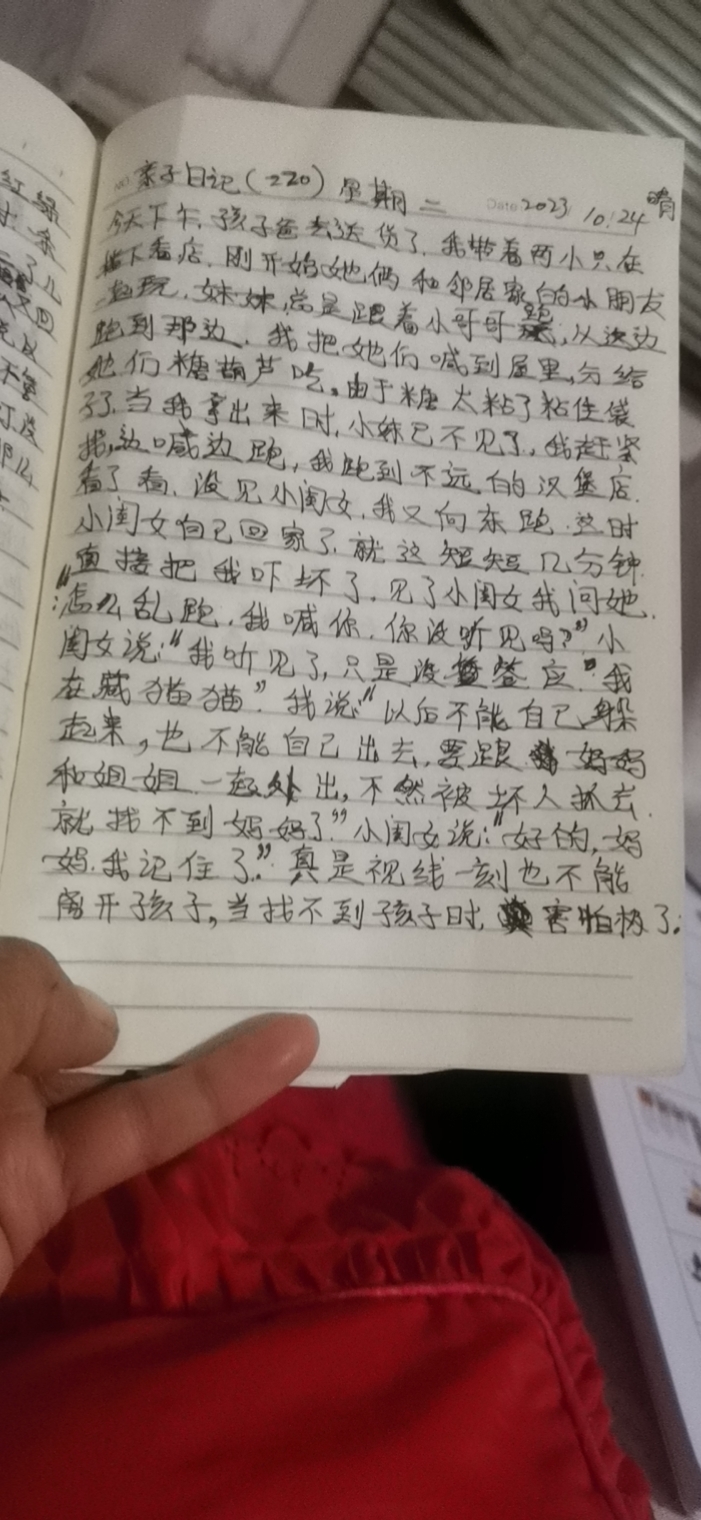 红绿
亲子日记(220) 星期二 Date 2023 10:24 晴
今天下午,孩子爸去送货了,我带着两小只在
楼下看店,刚开始她俩和邻居家的小朋友
一起玩,妹妹总是跟着小哥哥跑,从这边
跑到那边,我把她们喊到屋里,分给
她们糖葫芦吃。由于糖太粘了粘住袋
子了,当我拿出来时,小妹已不见了,我赶紧
找,边喊边跑,我跑到不远的汉堡店
看了看,没见小闺女,我又向东跑,这时
小闺女自己回家了,就这短短几分钟
直接把我吓坏了,见了小闺女我问她
:“怎么乱跑,我喊你,你没听见吗?”小
闺女说:“我听见了,只是没答应”“我
在藏猫猫”。我说:“以后不能自己躲
起来,也不能自己出去,要跟妈妈
和姐姐一起外出,不然被坏人抓去
就找不到妈妈了”小闺女说:“好的,妈
妈,我记住了”。真是视线一刻也不能
离开孩子,当找不到孩子时,害怕极了。